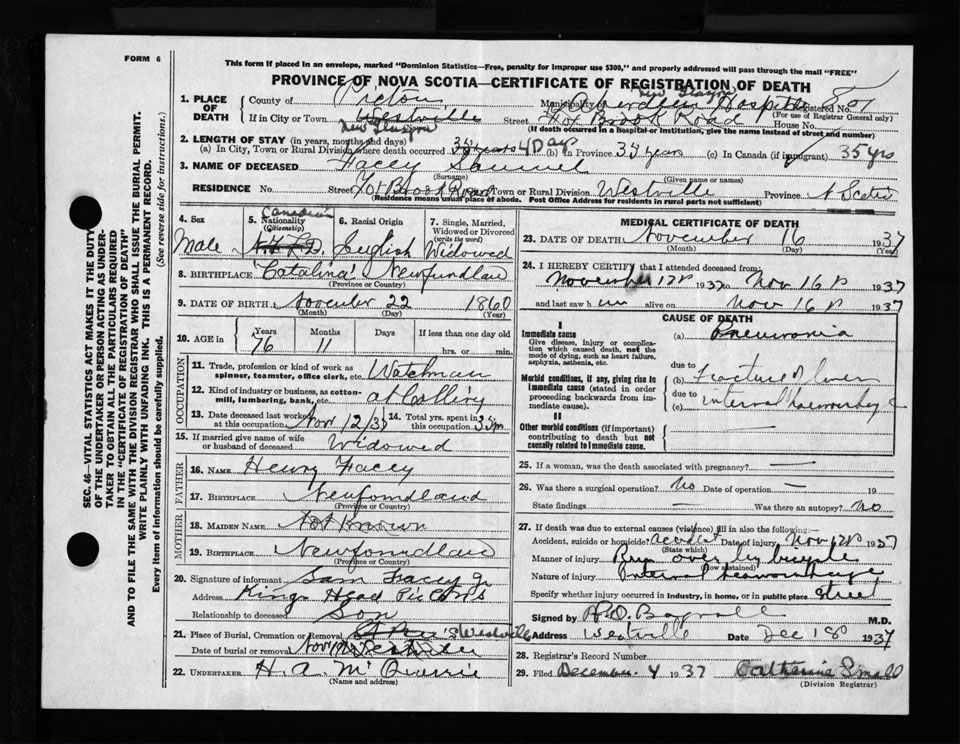 FORM 6
This form if placed in an envelope, marked "Dominion Statistics—Free, penalty for improper use $300," and properly addressed will pass through the mail "FREE"
PROVINCE OF NOVA SCOTIA—CERTIFICATE OF REGISTRATION OF DEATH
SEC. 46—VITAL STATISTICS ACT MAKES IT THE DUTY
OF THE UNDERTAKER OR PERSON ACTING AS UNDER-
TAKER TO OBTAIN ALL THE PARTICULARS REQUIRED
IN THE "CERTIFICATE OF REGISTRATION OF DEATH"
AND TO FILE THE SAME WITH THE DIVISION REGISTRAR WHO SHALL ISSUE THE BURIAL PERMIT.
WRITE PLAINLY WITH UNFADING INK. THIS IS A PERMANENT RECORD.
Every item of information should be carefully supplied. (See reverse side for instructions.)
1. PLACE OF DEATH
County of Pictou Municipality of New Glasgow Registered No. 801
Aberdeen Hospital (For use of Registrar General only)
If in City or Town Westville Street Fox Brook Road House No.
New Glasgow (If death occurred in a hospital or institution, give the name instead of street and number)
2. LENGTH OF STAY (in years, months and days)
(a) In City, Town or Rural Division where death occurred 35 years 4 Days (b) In Province 35 years (c) In Canada (if immigrant) 35 yrs
3. NAME OF DECEASED Facey Samuel
(Surname) (Given name or names)
RESIDENCE No. Street Fox Brook Road Town or Rural Division Westville Province N Scotia
(Residence means usual place of abode. Post Office Address for residents in rural parts not sufficient)
4. Sex Male
5. Nationality (Citizenship) Canadian
6. Racial Origin English
7. Single, Married, Widowed or Divorced (write the word) Widowed
8. BIRTHPLACE 'Catalina' Newfundlan
(Province or Country)
9. DATE OF BIRTH November 22 1860
(Month) (Day) (Year)
10. AGE in Years 76 Months 11 Days If less than one day old hrs. or min.
OCCUPATION
11. Trade, profession or kind of work as spinner, teamster, office clerk, etc. Watchman
12. Kind of industry or business, as cotton-mill, lumbering, bank, etc. at Colliery
13. Date deceased last worked at this occupation Nov 12/37 14. Total yrs. spent in this occupation 35
15. If married give name of wife or husband of deceased Widowed
FATHER
16. NAME Henry Facey
17. BIRTHPLACE Newfoundland
(Province or Country)
MOTHER
18. MAIDEN NAME Not Known
19. BIRTHPLACE Newfoundlan
(Province or Country)
20. Signature of informant Sam Facey Jr
Address Kings Head Pic
Relationship to deceased Son
21. Place of Burial, Cremation or Removal Westville
Date of burial or removal Nov
22. UNDERTAKER H. A. McQuarrie
(Name and address)
MEDICAL CERTIFICATE OF DEATH
23. DATE OF DEATH November 16 1937
(Month) (Day) (Year)
24. I HEREBY CERTIFY that I attended deceased from:
November 12th 1937 to Nov 16th 1937
and last saw him alive on Nov 16th 1937
CAUSE OF DEATH
I
Immediate cause
Give disease, injury or complication which caused death, not the mode of dying, such as heart failure, asphyxia, asthenia, etc.
(a) Pneumonia
due to
Morbid conditions, if any, giving rise to immediate cause (stated in order proceeding backwards from immediate cause).
(b) Fracture of liver
due to
(c) internal haemorrhage
II
Other morbid conditions (if important) contributing to death but not causally related to immediate cause.
25. If a woman, was the death associated with pregnancy? —
26. Was there a surgical operation? No Date of operation — 19
State findings — Was there an autopsy? no
27. If death was due to external causes (violence) fill in also the following:—
Accident, suicide or homicide? accident Date of injury Nov 12th 1937
(State which)
Manner of injury Run over by bicycle
(How sustained)
Nature of injury Internal haemorrhage
Specify whether injury occurred in industry, in home, or in public place street
Signed by H.D. Bagnall M.D.
Address Westville Date Dec 1st 1937
28. Registrar's Record Number
29. Filed December 4 1937 Catherine Small
(Division Registrar)